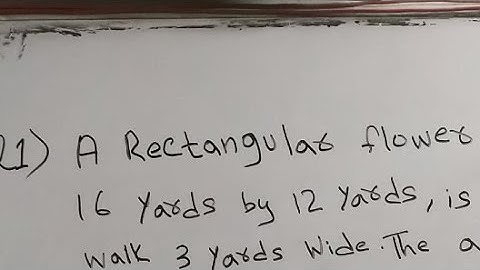 Q1) A Rectangular flower
16 Yards by 12 Yards, is
walk 3 Yards Wide. The a